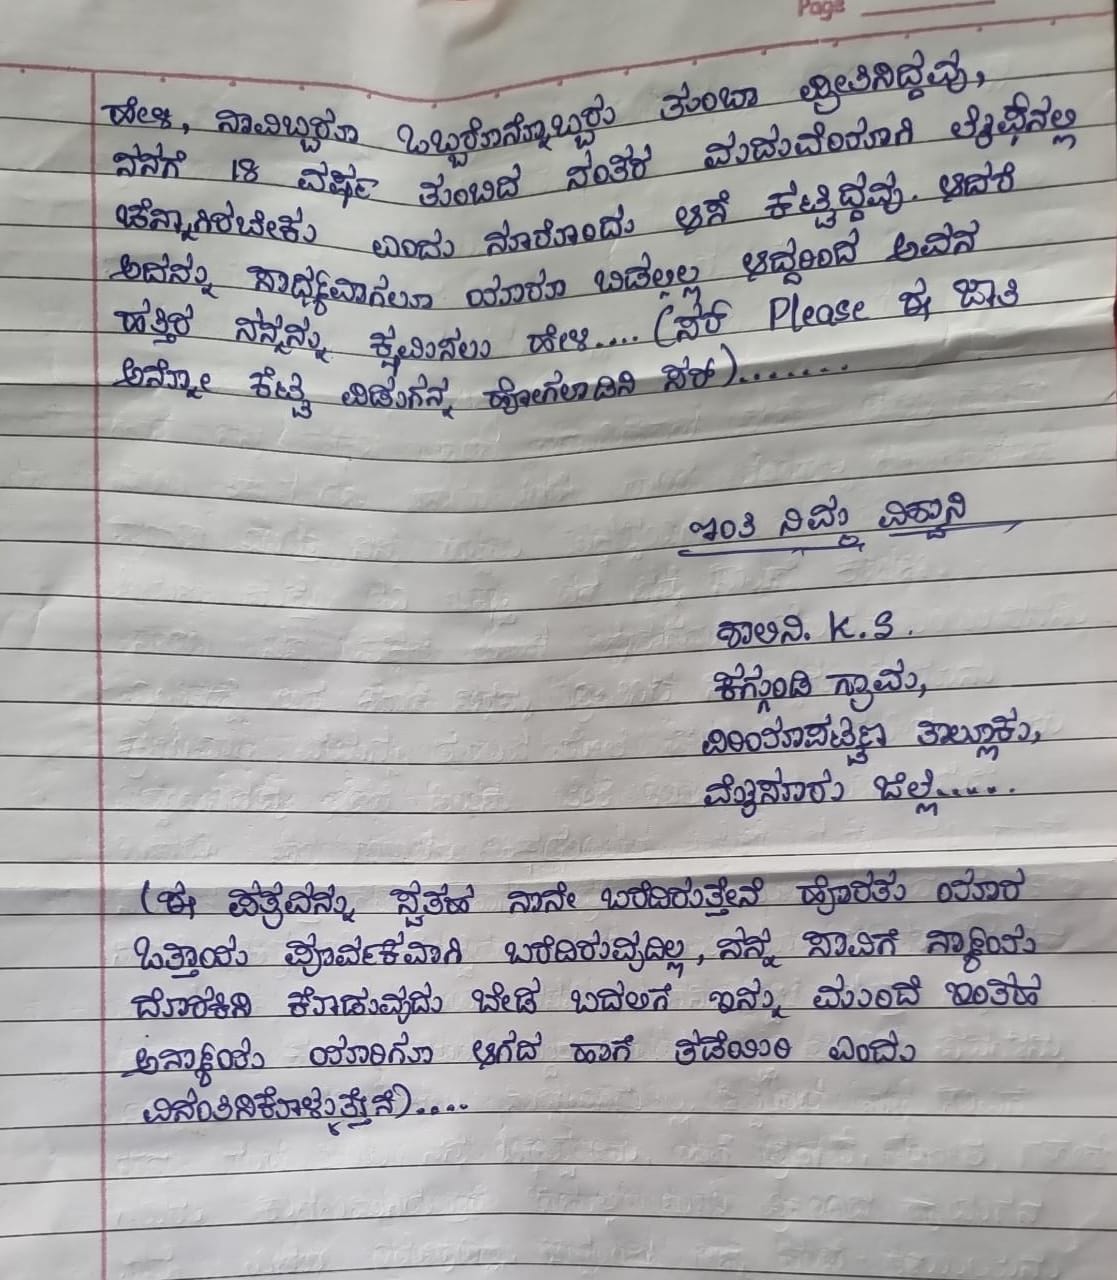 Page
ಹೇಳಿ, ನಾವಿಬ್ಬರೂ ಒಬ್ಬರಿಗೊನ್ನೊಬ್ಬರು ತುಂಬಾ ಪ್ರೀತಿಸಿದ್ದೆವು,
ನನಗೆ 18 ವರ್ಷ ತುಂಬಿದ ನಂತರ ಮದುವೆಯಾಗಿ ಲೈಫ್‌ನಲ್ಲಿ
ಚೆನ್ನಾಗಿರಬೇಕು ಎಂದು ನೂರೊಂದು ಆಸೆ ಕಟ್ಟಿದ್ದೆವು. ಆದರೆ
ಅದನ್ನು ಸಾಧ್ಯವಾಗಲೂ ಯಾರೂ ಬಿಡಲ್ಲಿಲ್ಲ ಆದ್ದರಿಂದ ಅವನ
ಹತ್ತಿರ ನನ್ನನ್ನು ಕ್ಷಮಿಸಲು ಹೇಳಿ.... (ಸರ್ Please ಈ ಜಾತಿ
ಅನ್ನೋ ಕೆಟ್ಟ ಪಿಡುಗನ್ನ ಹೋಗಲಾಡಿಸಿ ಸರ್).......
ಇಂತಿ ನಿಮ್ಮ ವಿಶ್ವಾಸಿ
ಶಾಲಿನಿ. K. S.
ಕಗ್ಗುಂಡಿ ಗ್ರಾಮ,
ಪಿರಿಯಾಪಟ್ಟಣ ತಾಲ್ಲೂಕು,
ಮೈಸೂರು ಜಿಲ್ಲೆ.....
(ಈ ಪತ್ರವನ್ನು ಸ್ವತಹ ನಾನೇ ಬರೆದಿರುತ್ತೇನೆ ಹೊರತು ಯಾರ
ಒತ್ತಾಯ ಪೂರ್ವಕವಾಗಿ ಬರೆದಿರುವುದಿಲ್ಲ, ನನ್ನ ಸಾವಿಗೆ ನ್ಯಾಯ
ದೊರಕಿಸಿ ಕೊಡುವುದು ಬೇಡ ಬದಲಿಗೆ ಇನ್ನು ಮುಂದೆ ಇಂತಹ
ಅನ್ಯಾಯ ಯಾರಿಗೂ ಆಗದ ಹಾಗೆ ತಡೆಯಿರಿ ಎಂದು
ವಿನಂತಿಸಿಕೊಳ್ಳುತ್ತೇನೆ)....